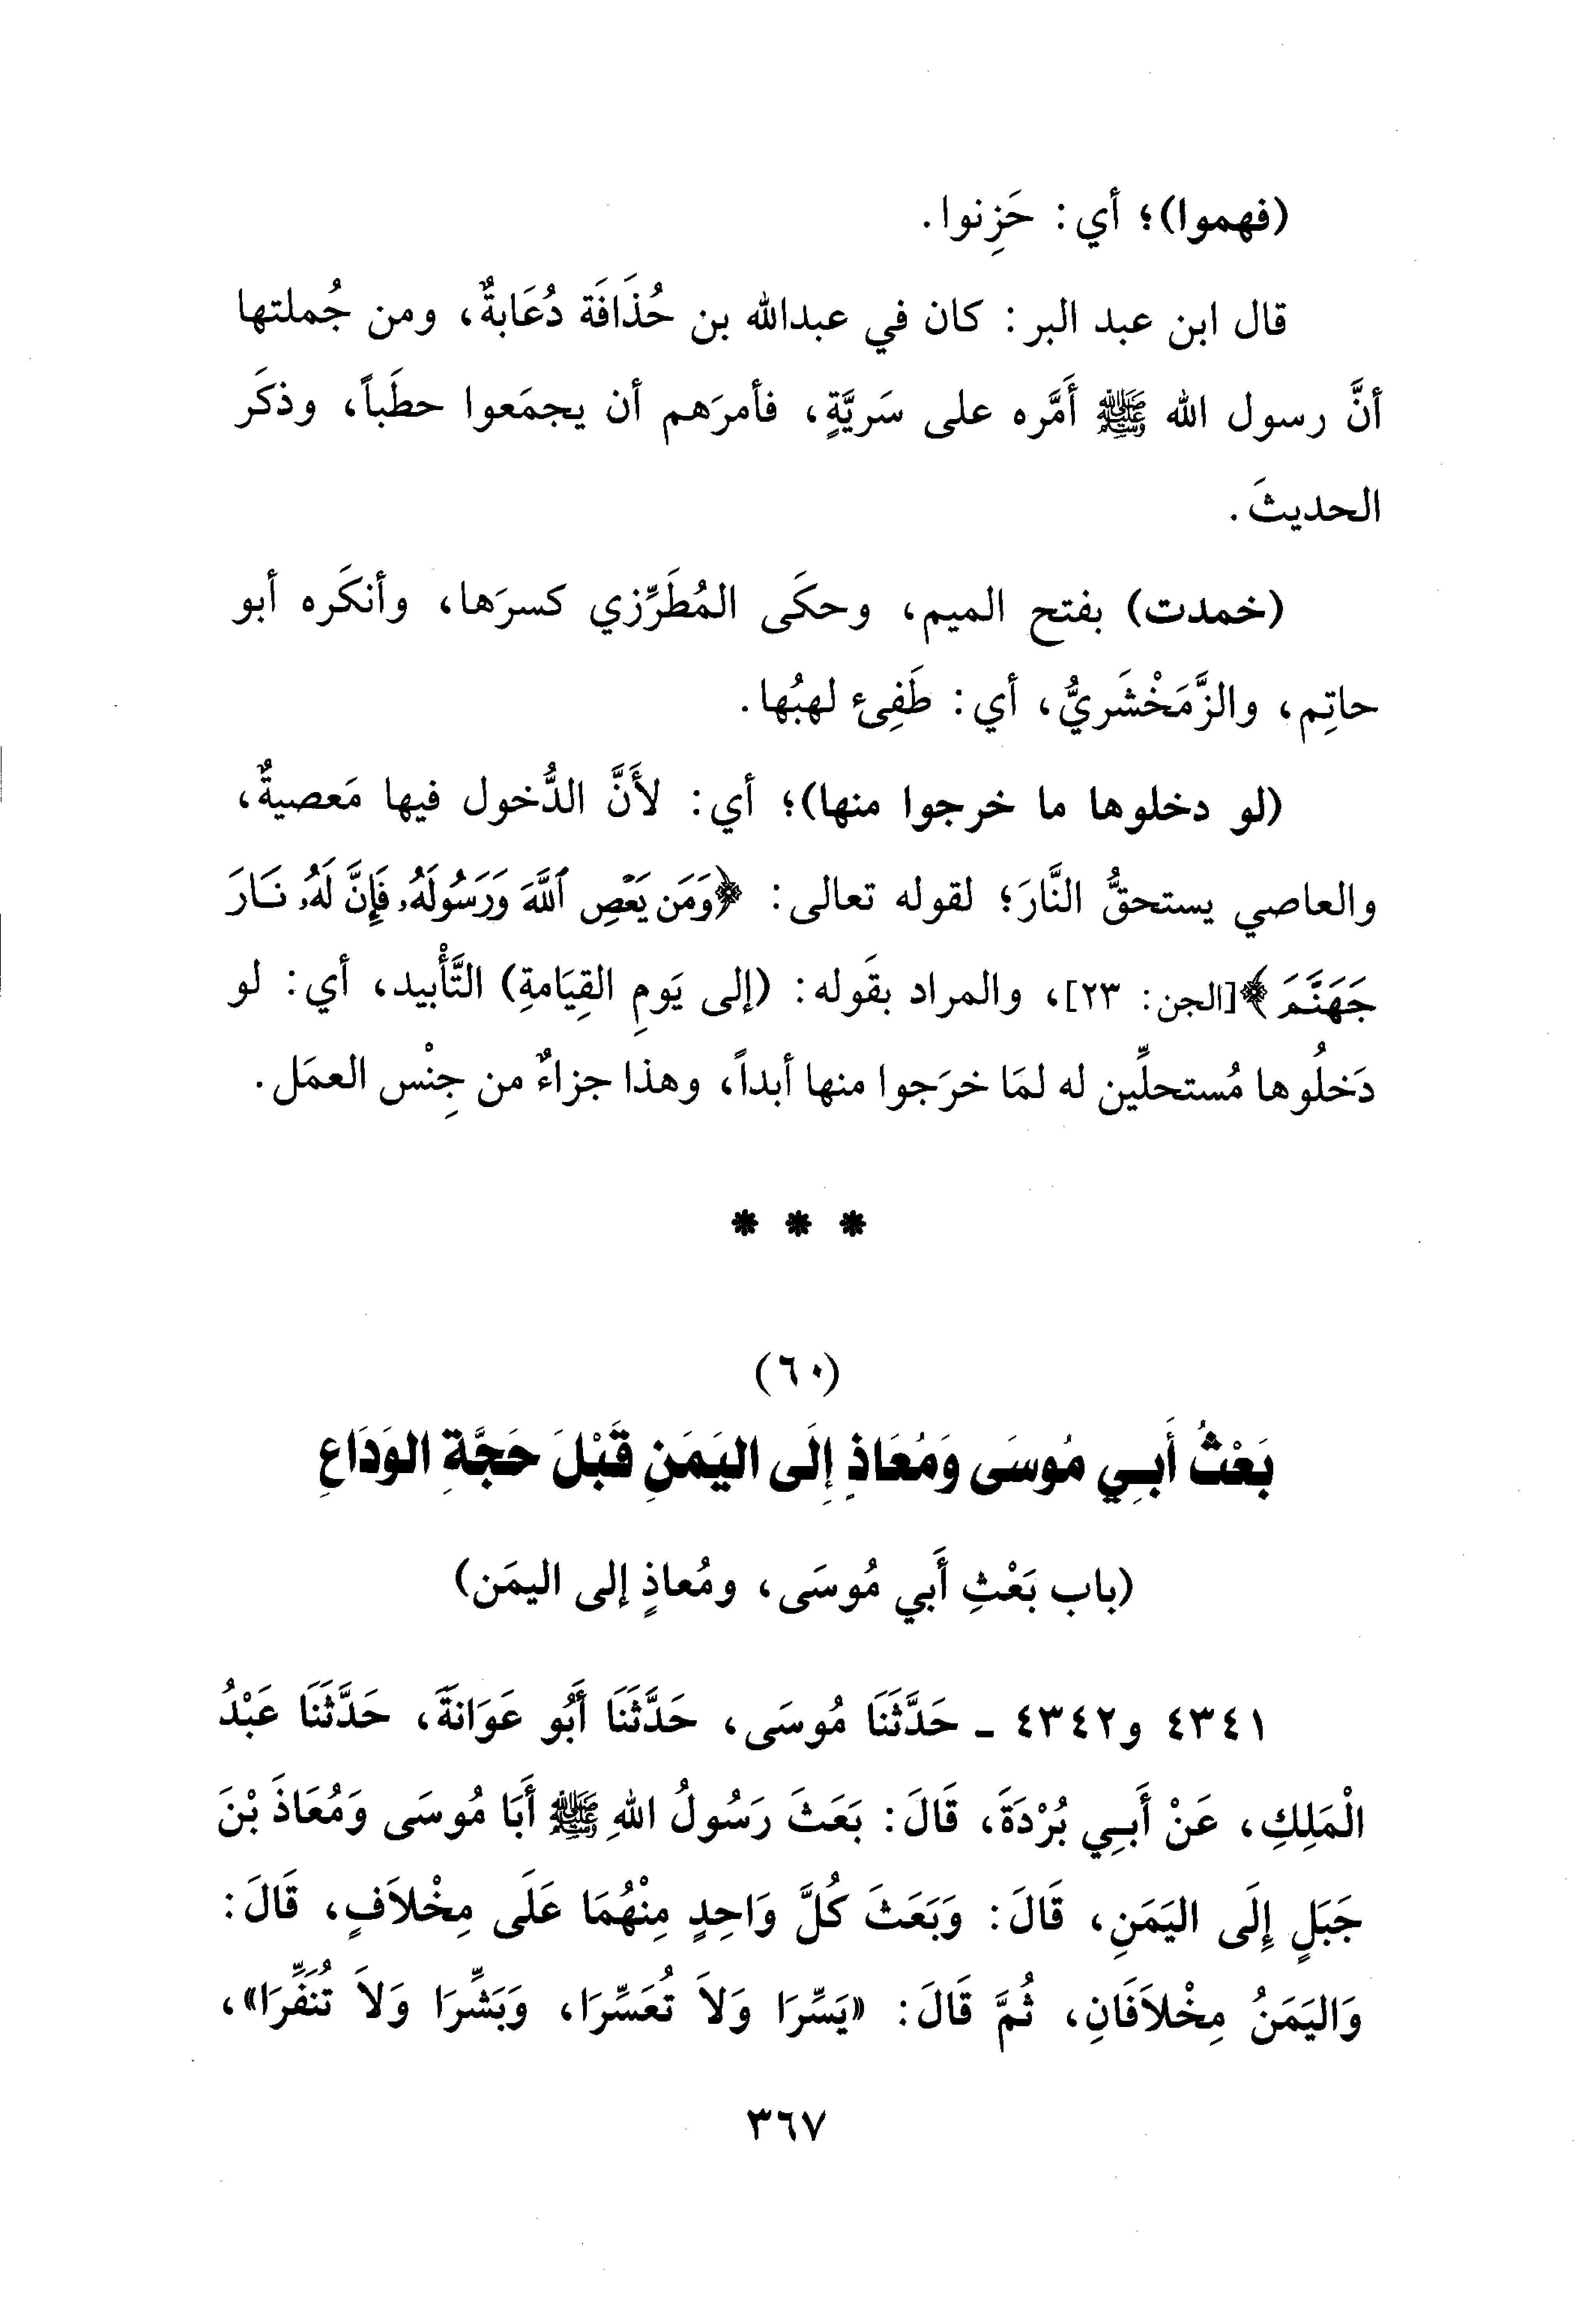 (فهموا)؛ أي: حَزِنوا.
قال ابن عبد البر: كان في عبدالله بن حُذَافَة دُعَابةٌ، ومن جُملتها
أنَّ رسول الله ﷺ أَمَّره على سَريَّةٍ، فأمرَهم أن يجمَعوا حطَباً، وذكَر
الحديثَ.
(خمدت) بفتح الميم، وحكَى المُطَرِّزي كسرَها، وأنكَره أبو
حاتِم، والزَّمَخْشَريُّ، أي: طَفِئ لهبُها.
(لو دخلوها ما خرجوا منها)؛ أي: لأَنَّ الدُّخول فيها مَعصيةٌ،
والعاصي يستحقُّ النَّارَ؛ لقوله تعالى: ﴿وَمَن يَعْصِ ٱللَّهَ وَرَسُولَهُۥ فَإِنَّ لَهُۥ نَارَ
جَهَنَّمَ﴾[الجن: ٢٣]، والمراد بقَوله: (إلى يَومِ القِيَامةِ) التَّأْبيد، أي: لو
دَخلُوها مُستحلِّين له لمَا خرَجوا منها أبداً، وهذا جزاءٌ من جِنْس العمَل.
* * *
(٦٠)
بَعْثُ أَبِي مُوسَى وَمُعَاذِ إِلَى اليَمَنِ قَبْلَ حَجَّةِ الوَدَاعِ
(باب بَعْثِ أَبي مُوسَى، ومُعاذٍ إلى اليمَن)
٤٣٤١ و٤٣٤٢ ـ حَدَّثَنَا مُوسَى، حَدَّثَنَا أَبُو عَوَانَةَ، حَدَّثَنَا عَبْدُ
الْمَلِكِ، عَنْ أَبِي بُرْدَةَ، قَالَ: بَعَثَ رَسُولُ اللهِ ﷺ أَبَا مُوسَى وَمُعَاذَ بْنَ
جَبَلٍ إِلَى اليَمَنِ، قَالَ: وَبَعَثَ كُلَّ وَاحِدٍ مِنْهُمَا عَلَى مِخْلاَفٍ، قَالَ:
وَاليَمَنُ مِخْلاَفَانِ، ثُمَّ قَالَ: «يَسِّرَا وَلاَ تُعَسِّرَا، وَبَشِّرَا وَلاَ تُنَفِّرَا»،
٣٦٧